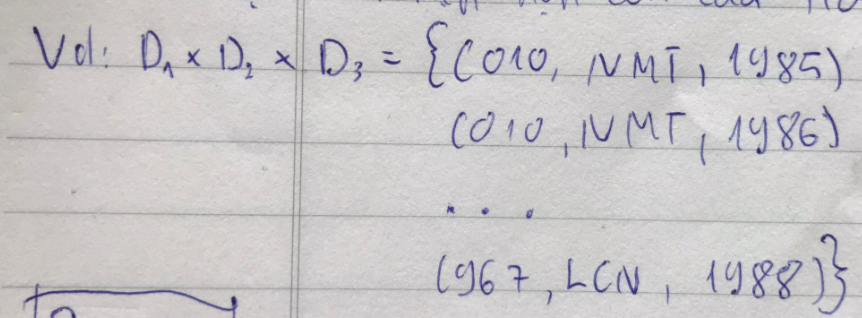 Vd: D₁ × D₂ × D₃ = {(010, NMT, 1985)
(010, NMT, 1986)
...
(967, LCN, 1988)}